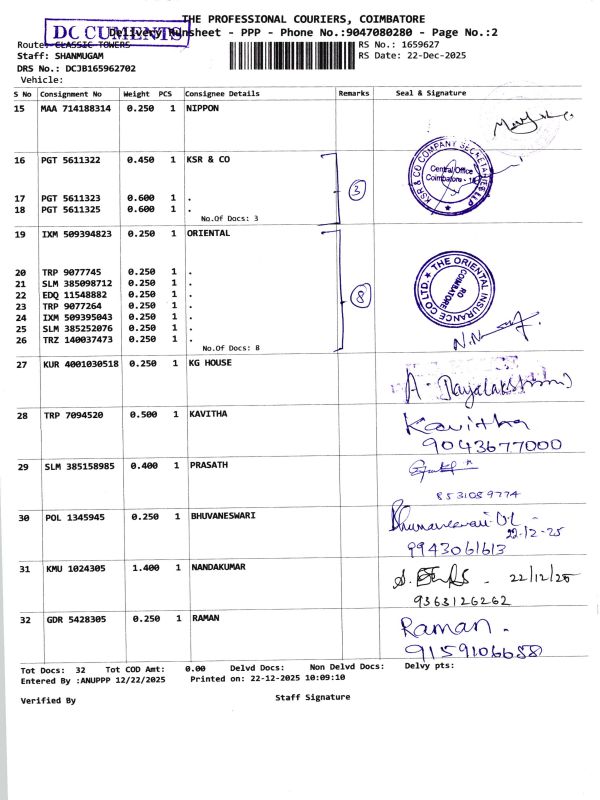 THE PROFESSIONAL COURIERS, COIMBATORE
DOCUMENTS
Delivery Runsheet - PPP - Phone No.:9047080280 - Page No.:2
Route: CLASSIC TOWERS
RS No.: 1659627
Staff: SHANMUGAM
RS Date: 22-Dec-2025
DRS No.: DCJB165962702
Vehicle:
S No Consignment No Weight PCS Consignee Details Remarks Seal & Signature
15 MAA 714188314 0.250 1 NIPPON
16 PGT 5611322 0.450 1 KSR & CO
KSR & CO COMPANY SECRETARIES LLP
Central Office
Coimbatore - 18
17 PGT 5611323 0.600 1 .
3
18 PGT 5611325 0.600 1 .
No.Of Docs: 3
19 IXM 509394823 0.250 1 ORIENTAL
THE ORIENTAL INSURANCE CO LTD.
RO
COIMBATORE
20 TRP 9077745 0.250 1 .
21 SLM 385098712 0.250 1 .
22 EDQ 11548882 0.250 1 .
8
23 TRP 9077264 0.250 1 .
24 IXM 509395043 0.250 1 .
25 SLM 385252076 0.250 1 .
26 TRZ 140037473 0.250 1 .
No.Of Docs: 8
27 KUR 4001030518 0.250 1 KG HOUSE
28 TRP 7094520 0.500 1 KAVITHA
Kavitha
9043677000
29 SLM 385158985 0.400 1 PRASATH
8531089774
30 POL 1345945 0.250 1 BHUVANESWARI
22-12-25
9943061613
31 KMU 1024305 1.400 1 NANDAKUMAR
22/12/25
9363126262
32 GDR 5428305 0.250 1 RAMAN
Raman.
9159106688
Tot Docs: 32 Tot COD Amt: 0.00 Delvd Docs: Non Delvd Docs: Delvy pts:
Entered By :ANUPPP 12/22/2025 Printed on: 22-12-2025 10:09:10
Staff Signature
Verified By